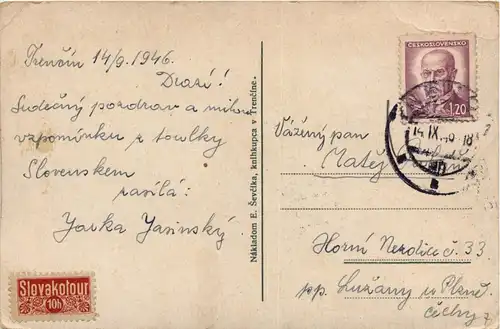 Trenčín 14/9. 1946.
Drazí!
Srdečný pozdrav a milou
vzpomínku z toulky
Slovenskem
zasílá:
Jarka
Slovakotour
10h
Nákladom E. Ševčíka, knihkupca v Trenčíne.
ČESKOSLOVENSKO
1.20
14.IX.
Vážený pan
Matěj
Horní Nezdice č. 33
pp. Lužany u Plzně.
Čechy